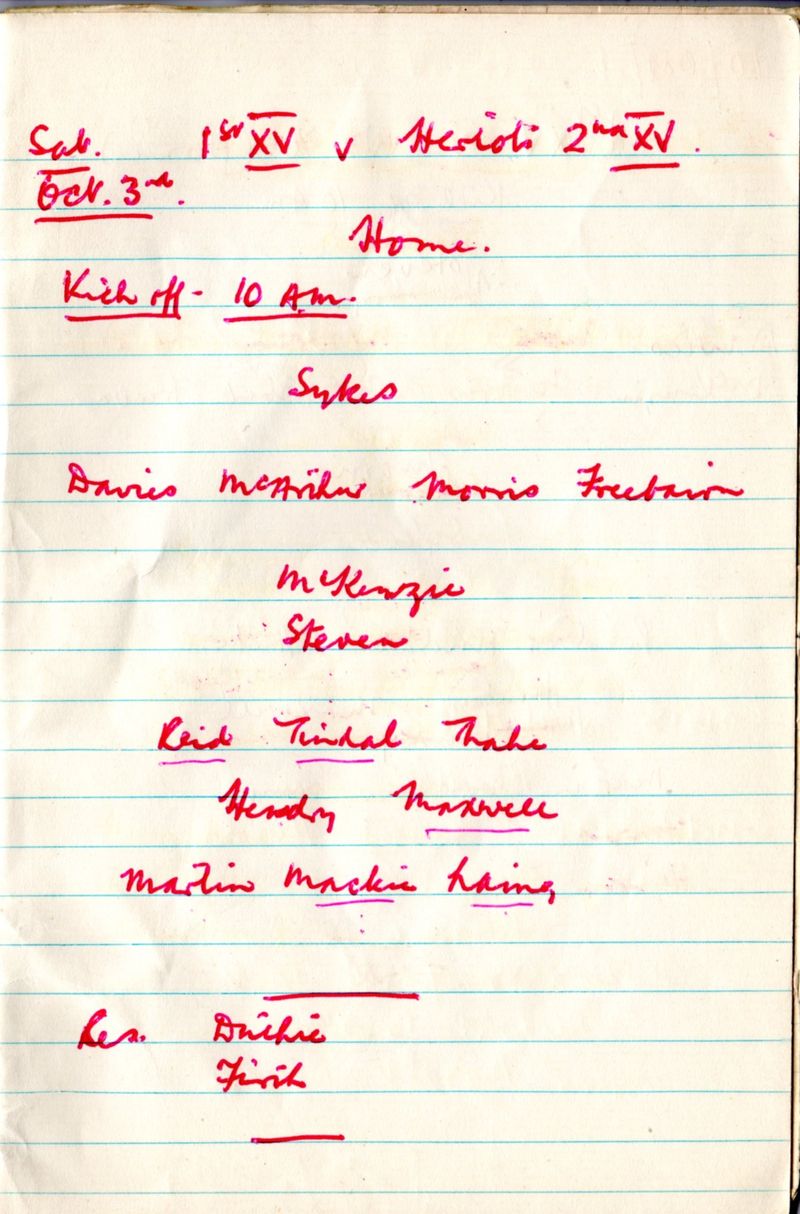 Sat. 1st XV v Heriots 2nd XV.
Oct. 3rd.
Home.
Kick off - 10 A.M.
Sykes
Davies McArthur Morris Freebairn
McKenzie
Steven
Reid Tindal Thake
Hendry Maxwell
Martin Mackie Laing
Res. Duthie
Firth